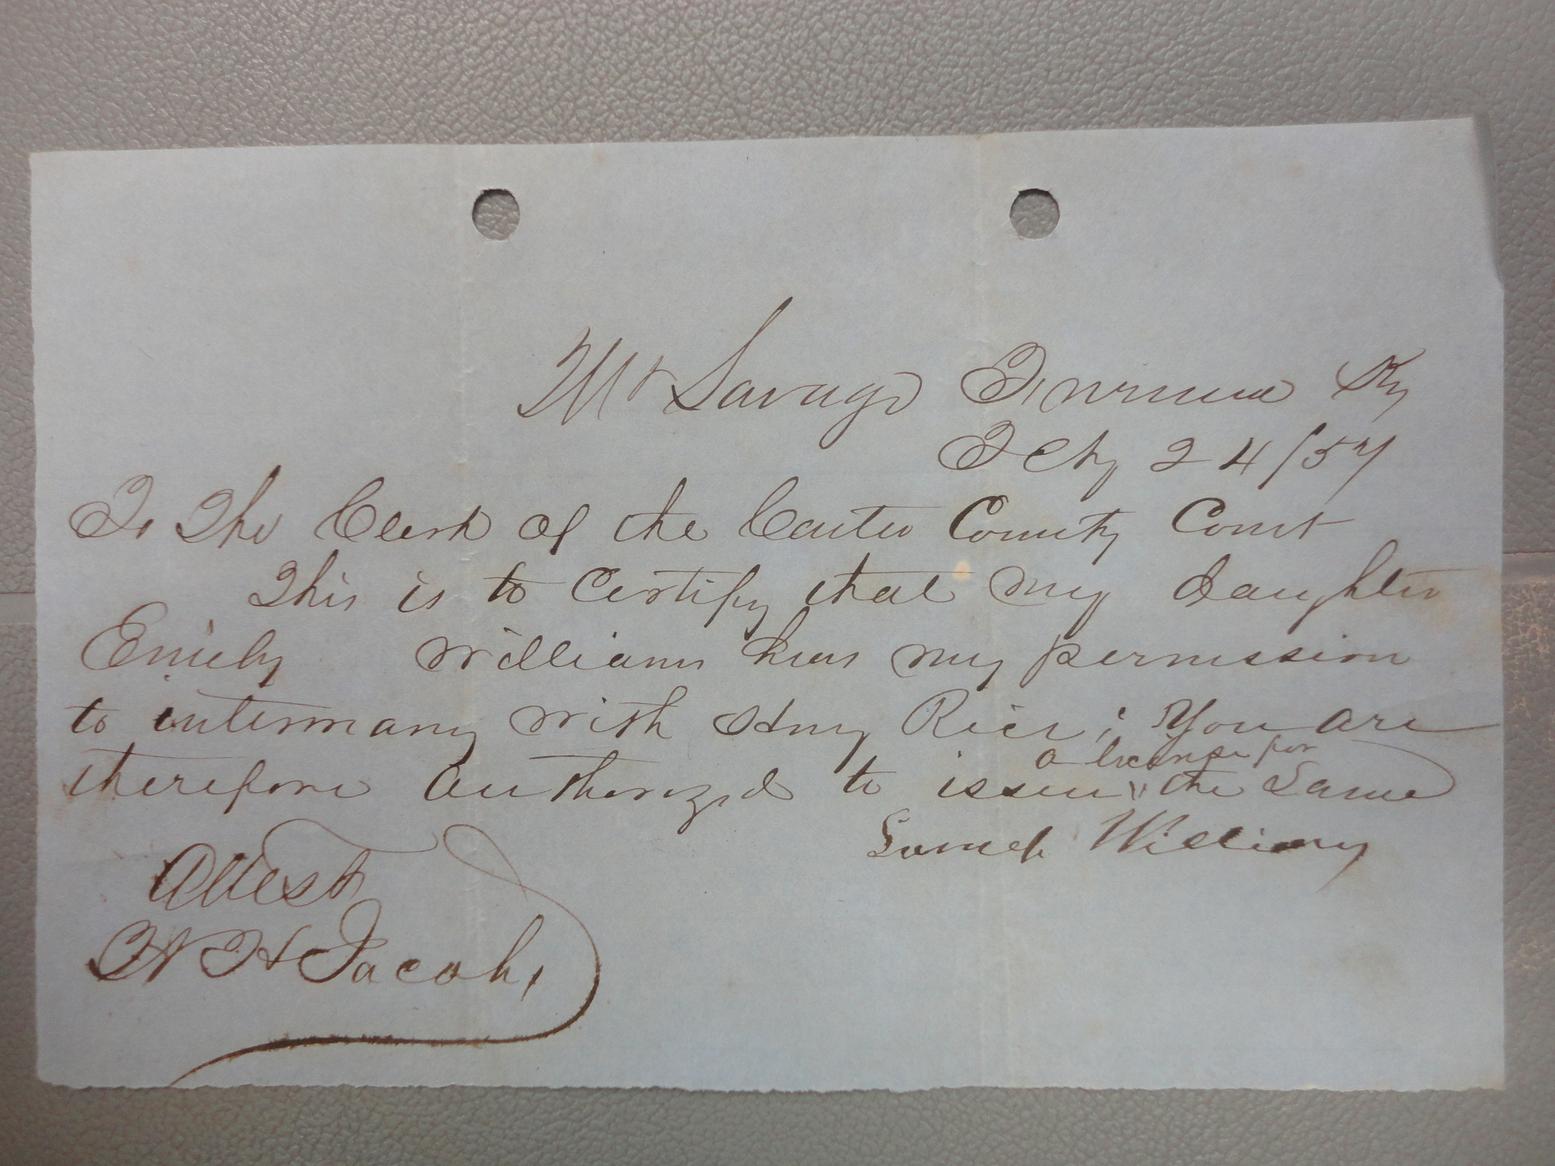 Mt Savage Furnace Ky
Feby 24/57
To The Clerk of the Carter County Court
This is to Certify that my daughter
Emily Williams has my permission
to intermarry with Rice; You are
therefore Authorized to issue the Same
a license for
Williams
Attest
H Jacobs